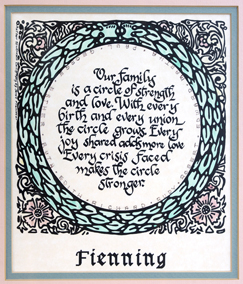 Our family
is a circle of strength
and love. With every
birth and every union
the circle grows. Every
joy shared adds more love
Every crisis faced
makes the circle
stronger.
Fienning